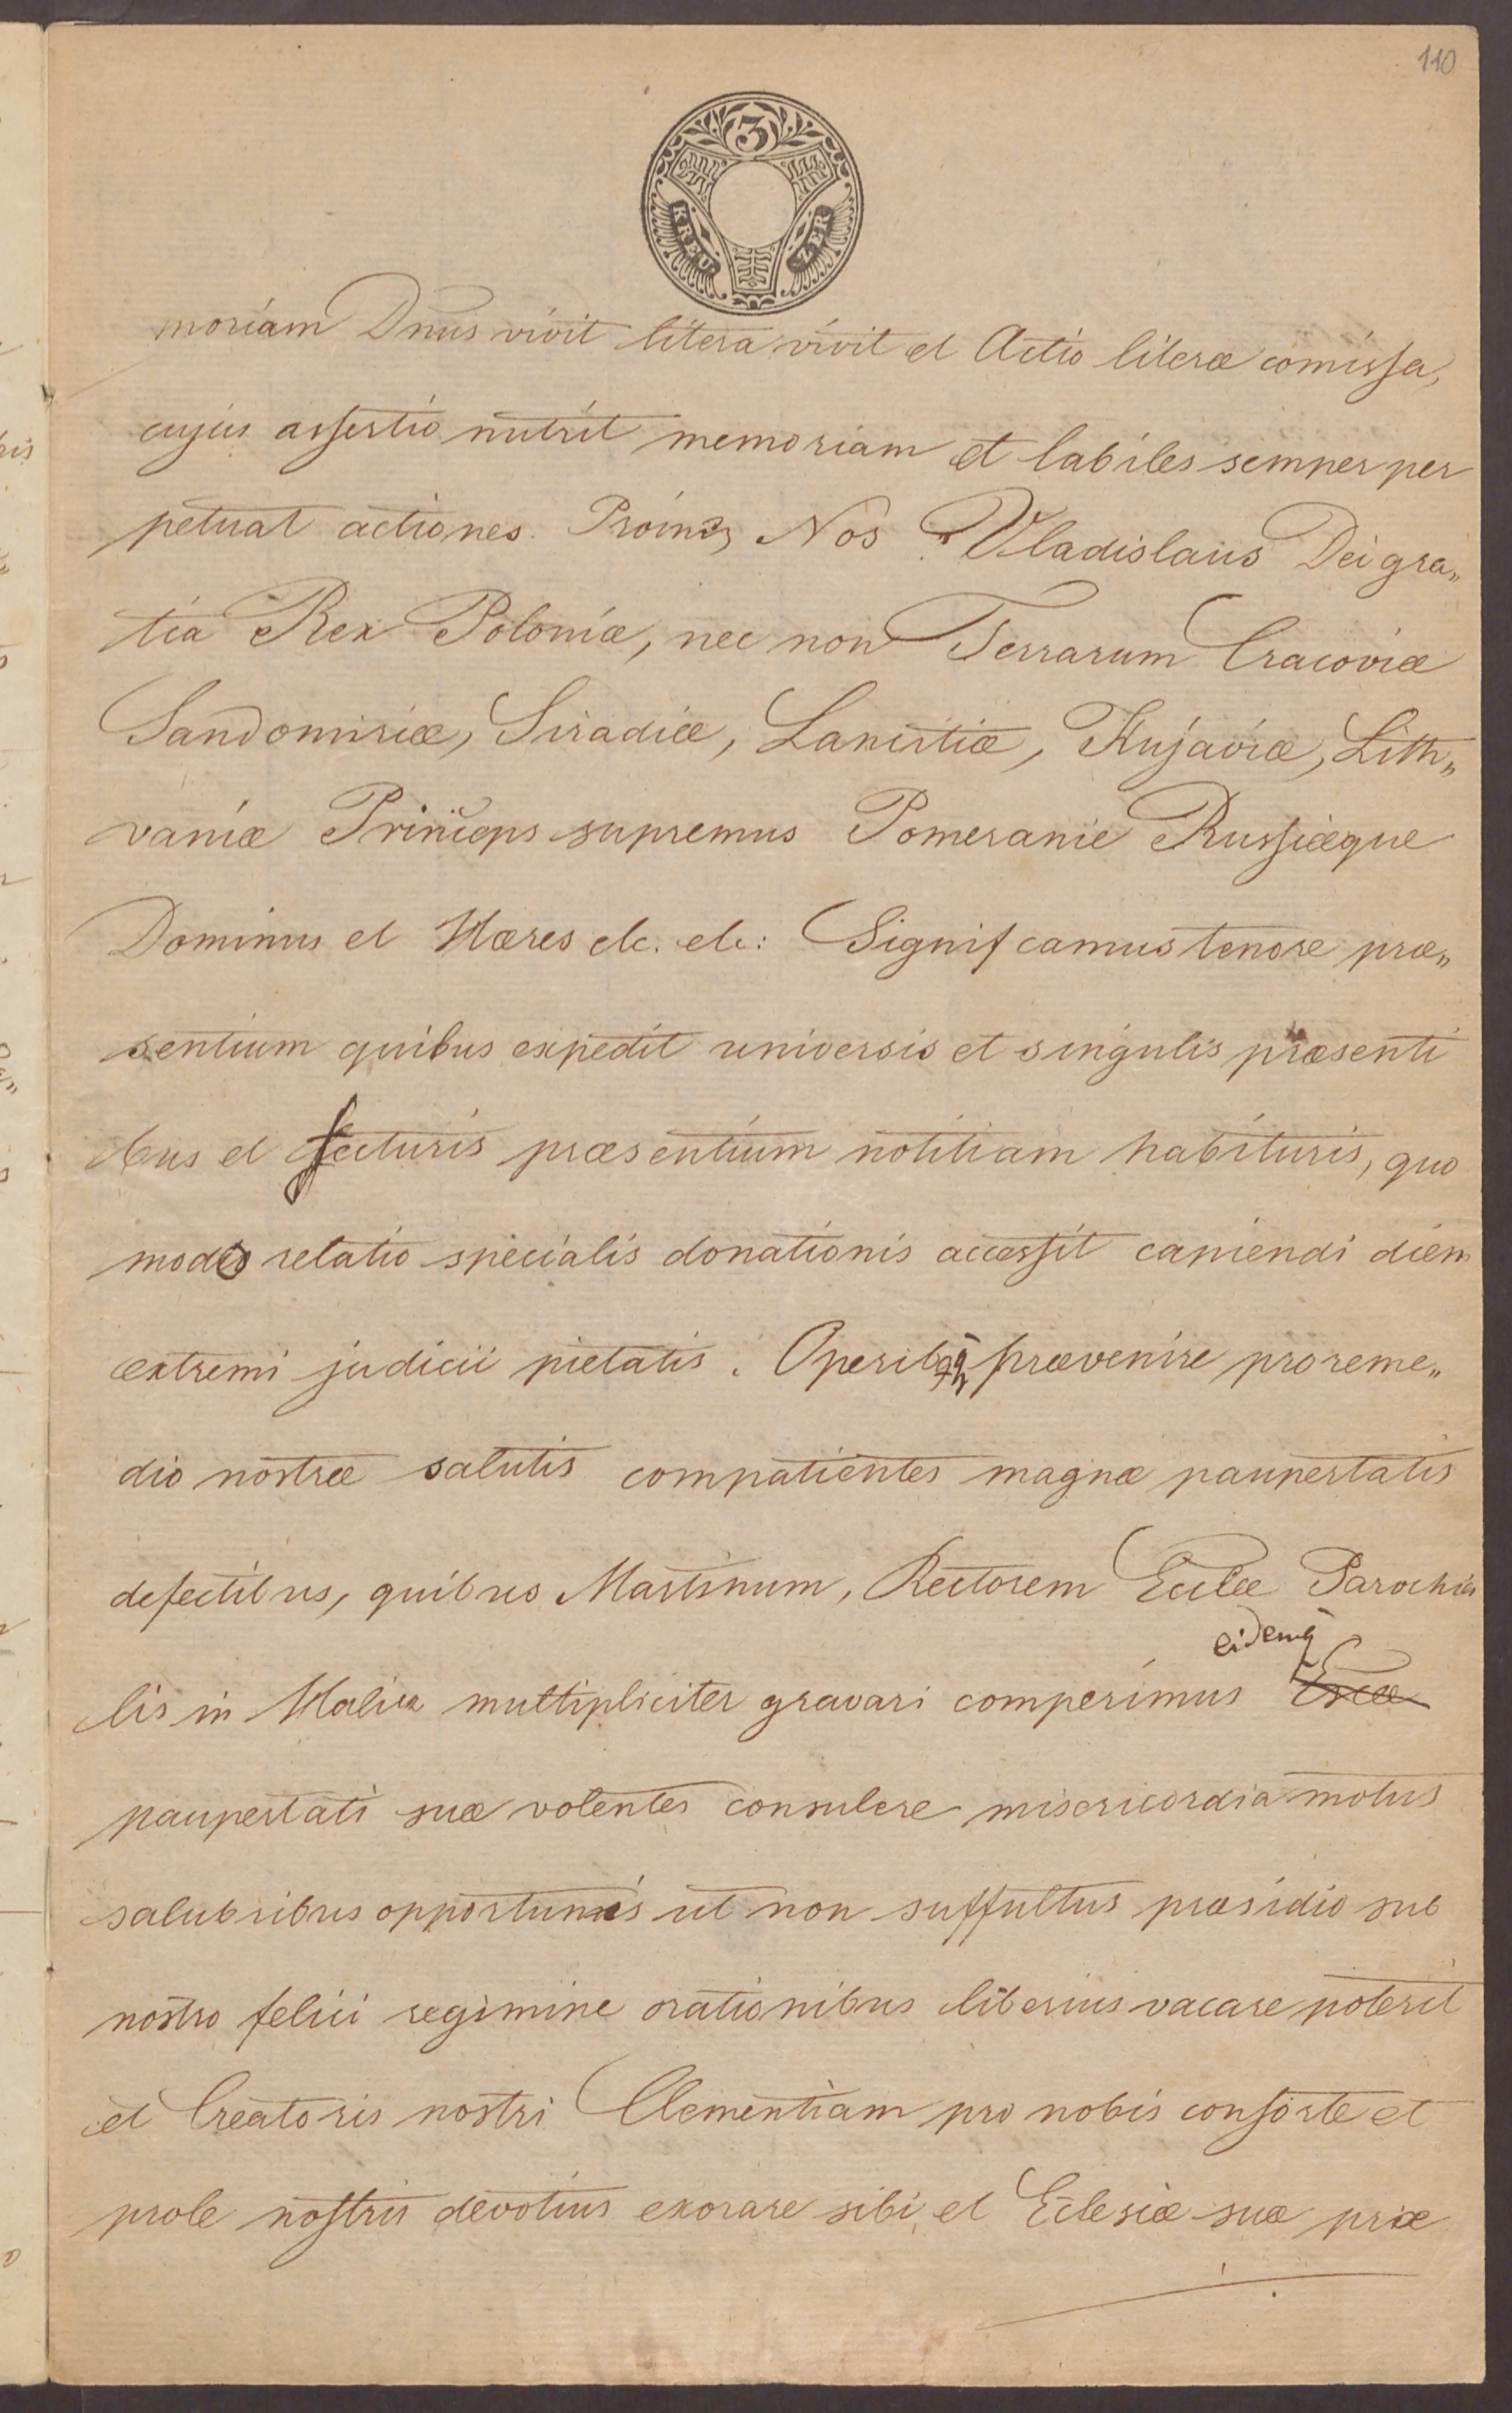 110
3
KREU
ZER
moriam Dnus vivit litera vivit et Actio literæ comissa,
cujus assertio nutrit memoriam et labiles semper per
petuat actiones. Nos Vladislaus Dei gra„
tia Rex Poloniæ, nec non Terrarum Cracoviæ
Sandomiriæ, Siradiæ, Lancitiæ, Kujaviæ, Lith„
vaniæ Princeps supremus Pomeranie Russiæque
Dominus et Hæres etc. etc: Significamus tenore præ„
sentium quibus expedit universis et singulis præsenti
bus et futuris præsentium notitiam habituris, quo
modo relatio specialis donationis accessit capiendi diem
extremi judicii pietatis. prævenire pro reme„
dio nostræ salutis compatientes magnæ paupertatis
defectibus, quibus Martinum, Rectorem Ecclæ Parochia
eidemq
lis in Halicz multipliciter gravari comperimus
paupertati suæ volentes consulere misericordia motus
salubribus opportunis ut non suffultus præsidio sub
nostro felici regimine orationibus liberius vacare poterit
et Creatoris nostri Clementiam pro nobis consorte et
prole nostris devotius exorare sibi et Eclesiæ suæ præ